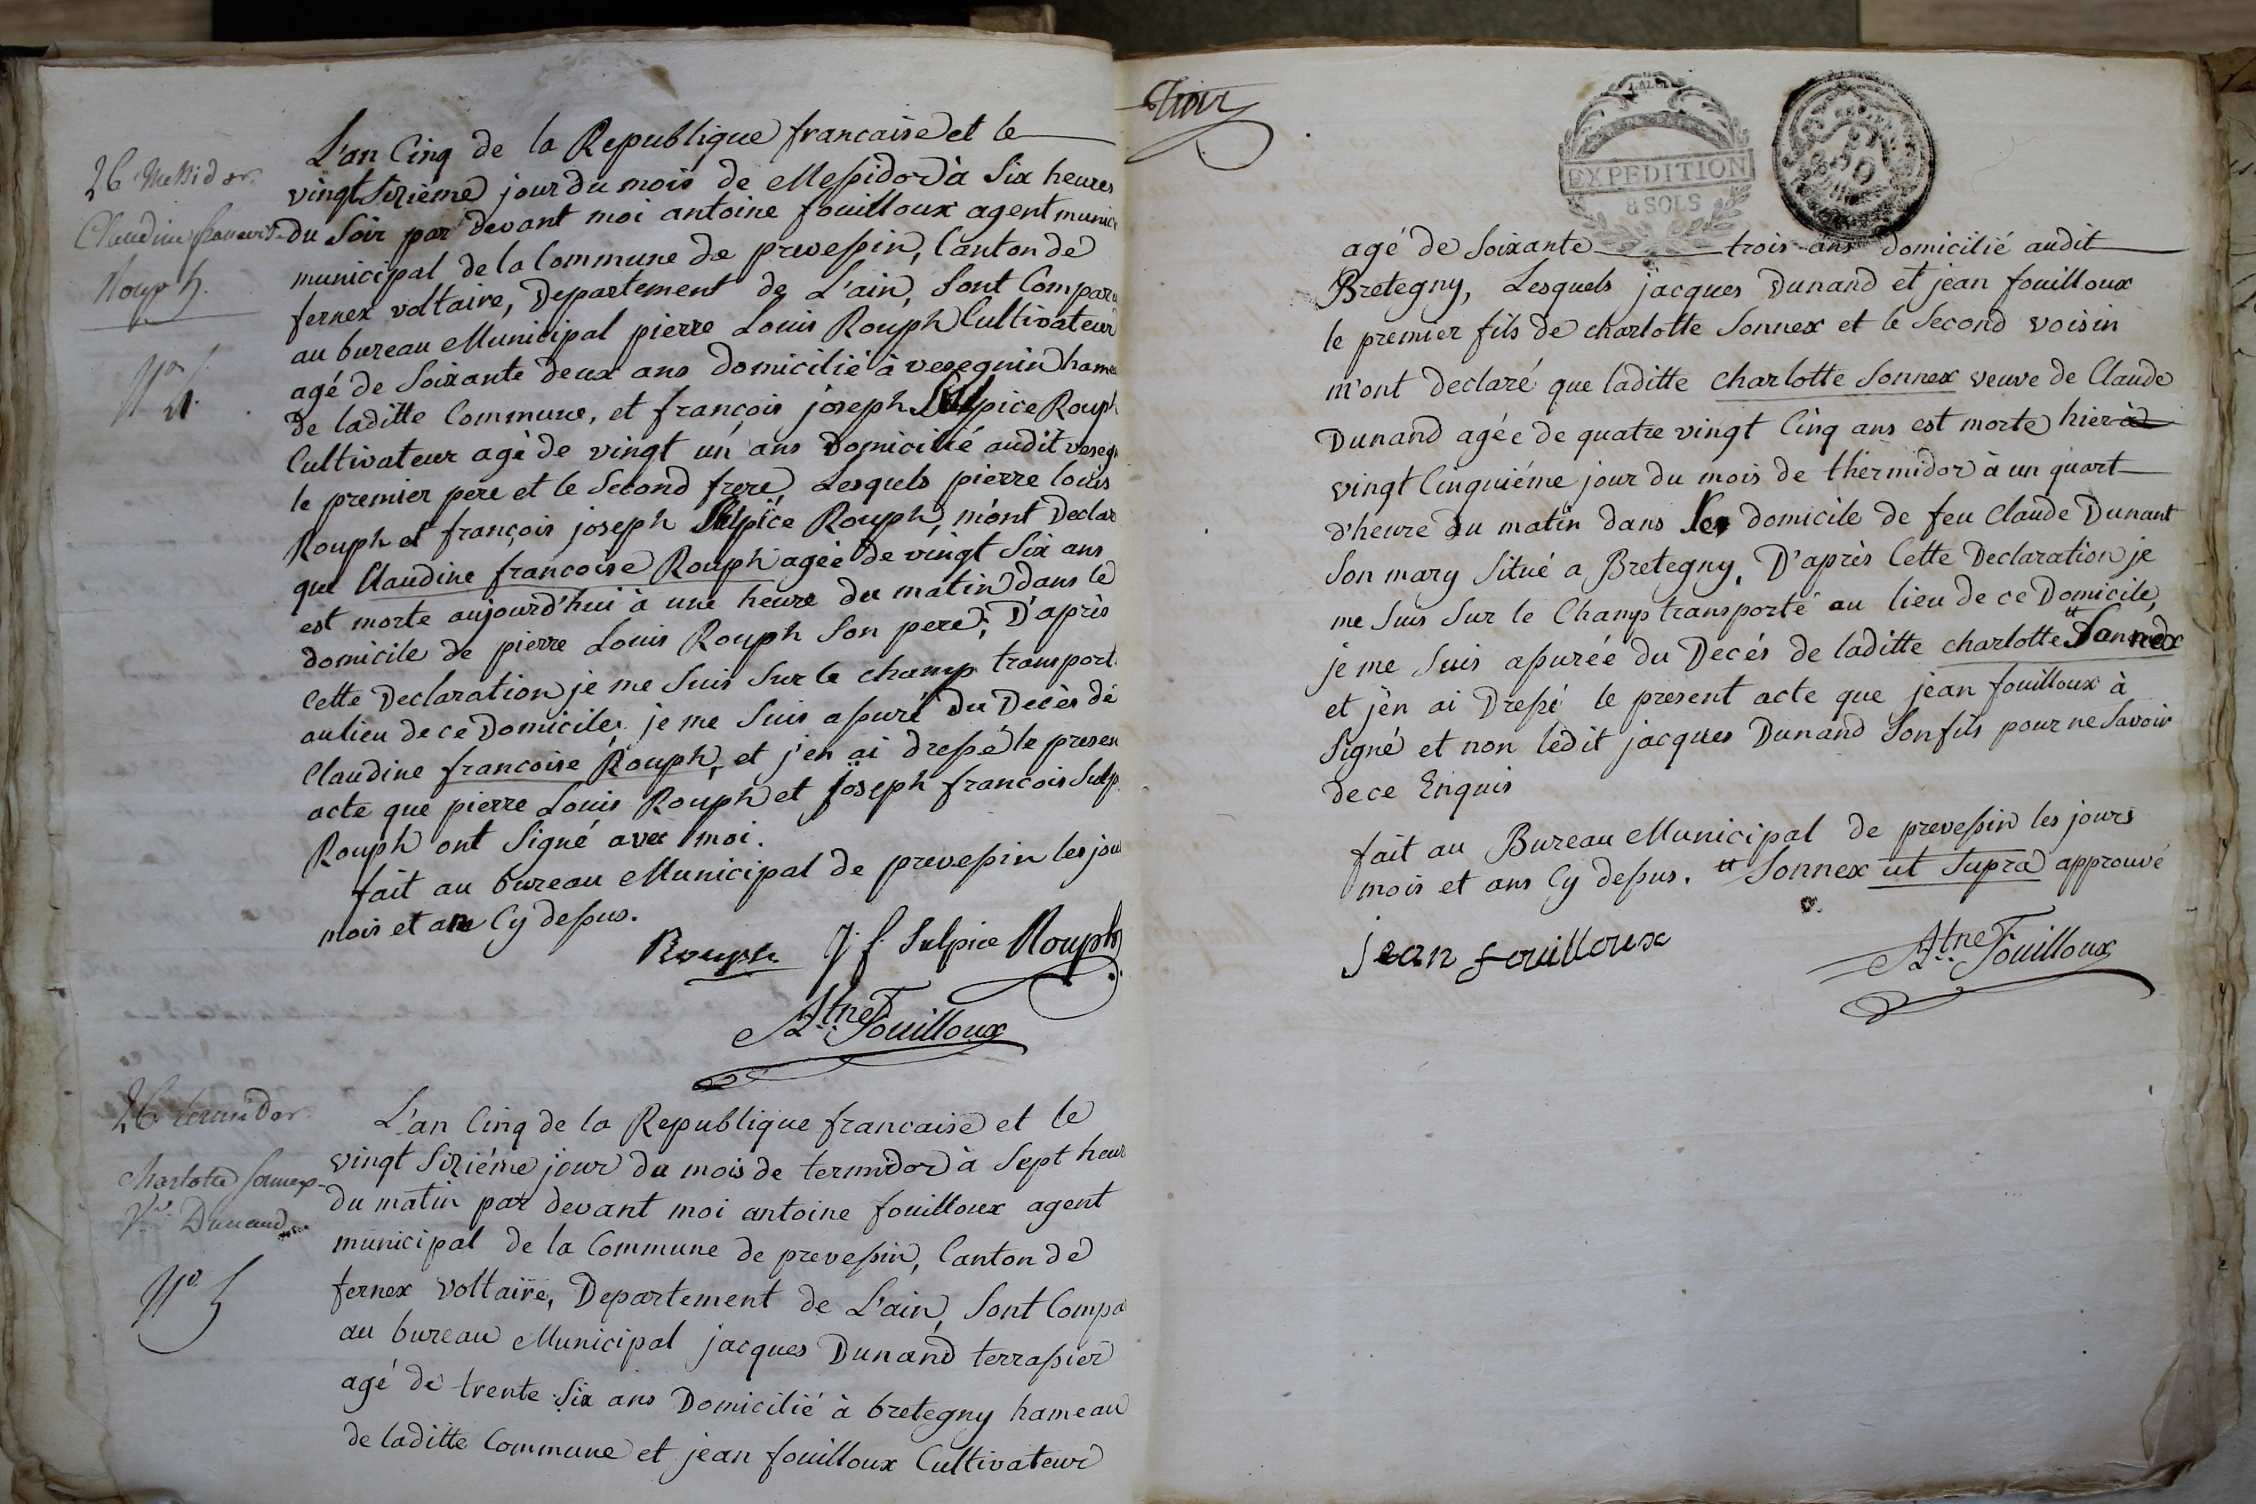 26 Messidor.
Claudine francoise
Rouph.
No 4.
L'an Cinq de la Republique francaise et le
vingt Sixième jour du mois de Messidor à Six heures
du Soir par devant moi antoine fouilloux agent munici
municipal de la Commune de prevessin, Canton de
fernex voltaire, Departement de L'ain, Sont Comparu
au bureau Municipal pierre Louis Rouph Cultivateur
agé de Soixante deux ans domicilié à vesegnin hame
de laditte Commune, et françois joseph Sulpice Rouph
Cultivateur agé de vingt un ans Domicilié audit veseg
le premier pere et le Second frere, Lesquels pierre louis
Rouph et françois joseph Sulpice Rouph, m'ont Declar
que Claudine francoise Rouph agée de vingt Six ans
est morte aujourd'hui à une heure du matin dans le
domicile de pierre Louis Rouph Son pere; D'après
Cette Declaration je me Suis Sur le champ transport
au lieu de ce Domicile, je me Suis assuré du Decès de
Claudine francoise Rouph, et j'en ai dressé le presen
acte que pierre Louis Rouph et joseph francois Sulp
Rouph ont Signé avec moi.
fait au bureau Municipal de prevessin les jou
mois et an Cy dessus.
Rouph J. f. Sulpice Rouph
Atne Fouilloux
26 termidor.
Charlotte Sonnex
Vve Dunand
No 5
L'an Cinq de la Republique francaise et le
vingt Sixiéme jour du mois de termidor à Sept heur
du matin par devant moi antoine fouilloux agent
municipal de la Commune de prevessin, Canton de
fernex Voltaire, Departement de L'ain, Sont Compa
au bureau Municipal jacques Dunand terrassier
agé de trente Six ans Domicilié à bretegny hameau
de laditte Commune et jean fouilloux Cultivateur
EXPEDITION
8 SOLS
agé de Soixante trois ans domicilié audit
Bretegny, Lesquels jacques Dunand et jean fouilloux
le premier fils de charlotte Sonnex et le Second voisin
m'ont declaré que laditte charlotte Sonnex veuve de Claude
Dunand agée de quatre vingt Cinq ans est morte hier à
vingt Cinquiéme jour du mois de thermidor à un quart
d'heure du matin dans Son domicile de feu Claude Dunant
Son mary Situé a Bretegny, D'après Cette Declaration je
me Suis Sur le Champ transporté au lieu de ce Domicile,
je me Suis assurée du Decés de laditte charlotte Sonnex
et j'en ai Dressé le present acte que jean fouilloux à
Signé et non ledit jacques Dunand Son fils pour ne Savoir
de ce Enquis
fait au Bureau Municipal de prevessin les jours
mois et ans Cy dessus. Sonnex ut Supra approuvé
jean fouilloux
Atne Fouilloux